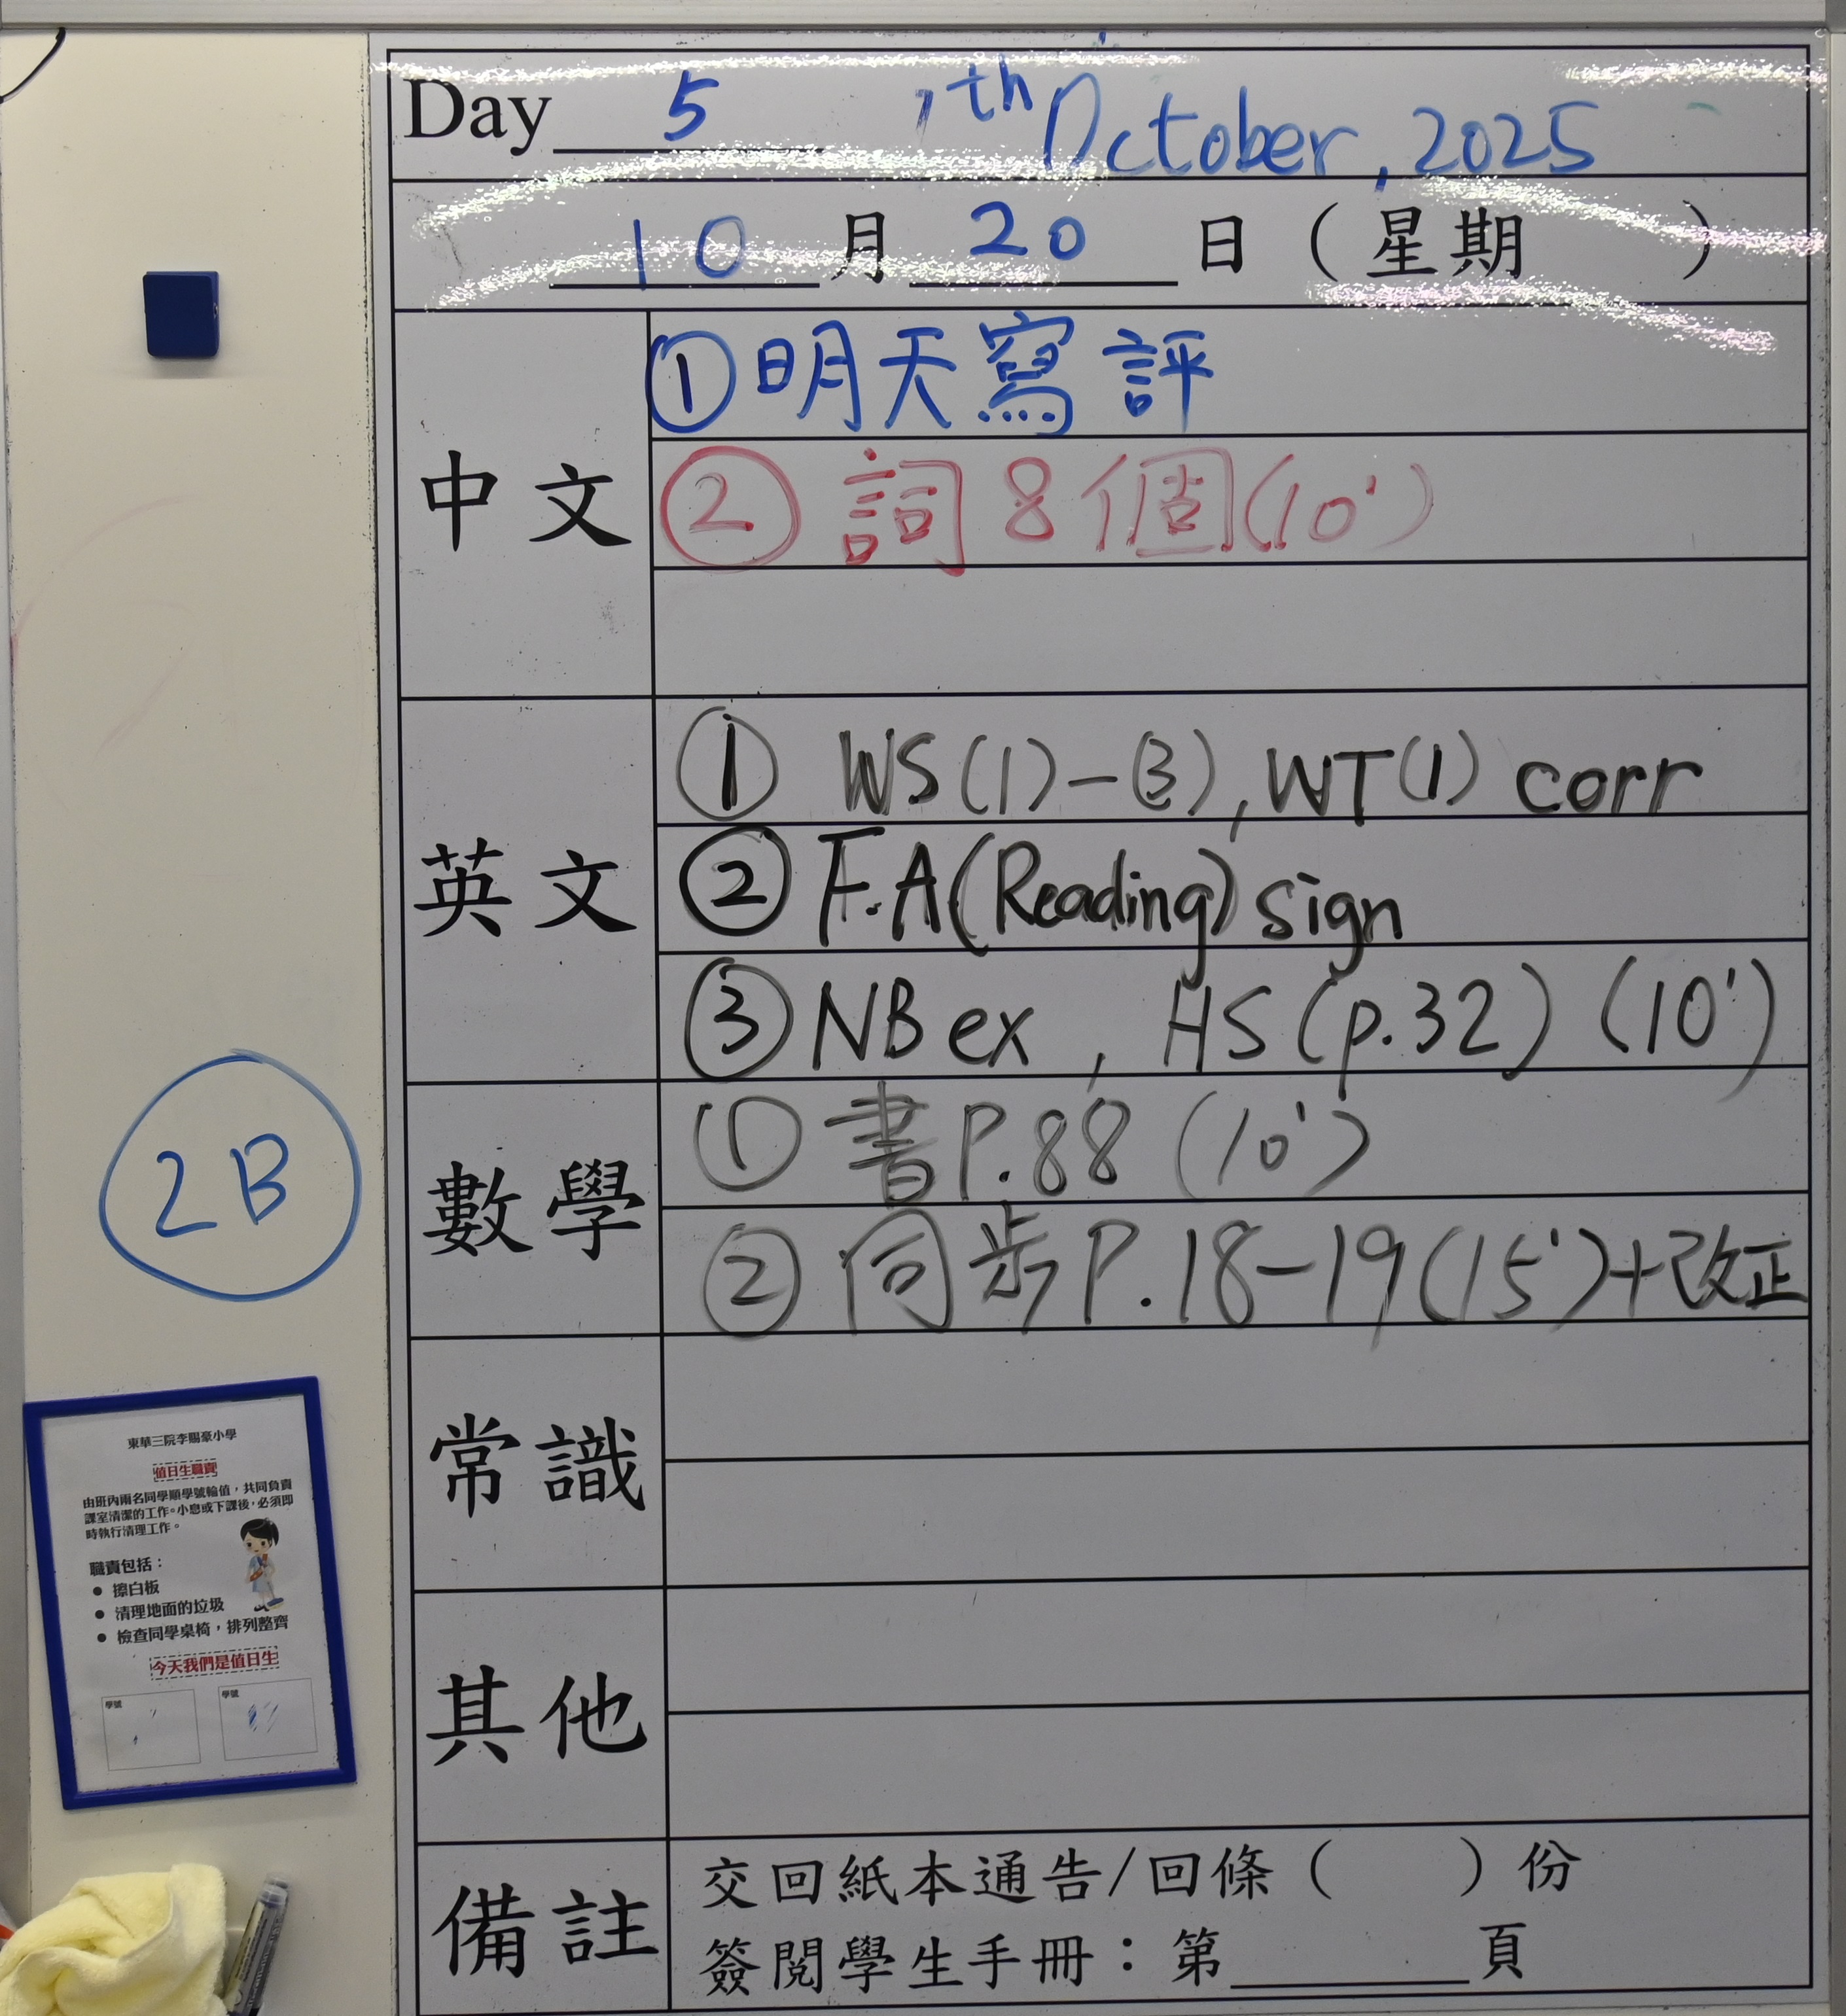 Day 5 th October, 2025
10 月 20 日 ( 星期 )
中文
①明天寫評
② 詞 8 個 (10')
英文
① WS (1) - (3), WT (1) corr
② F.A (Reading) sign
③ NB ex , HS (p.32) (10')
數學
① 書 P.88 (10')
② 同步 P.18-19 (15') + 改正
常識
其他
備註
交回紙本通告/回條 ( ) 份
簽閱學生手冊：第 頁
2B
東華三院李賜豪小學
值日生職責
由班內兩名同學順學號輪值，共同負責
課室清潔的工作。小息或下課後，必須即
時執行清理工作。
職責包括：
● 擦白板
● 清理地面的垃圾
● 檢查同學桌椅，排列整齊
今天我們是值日生
學號 學號